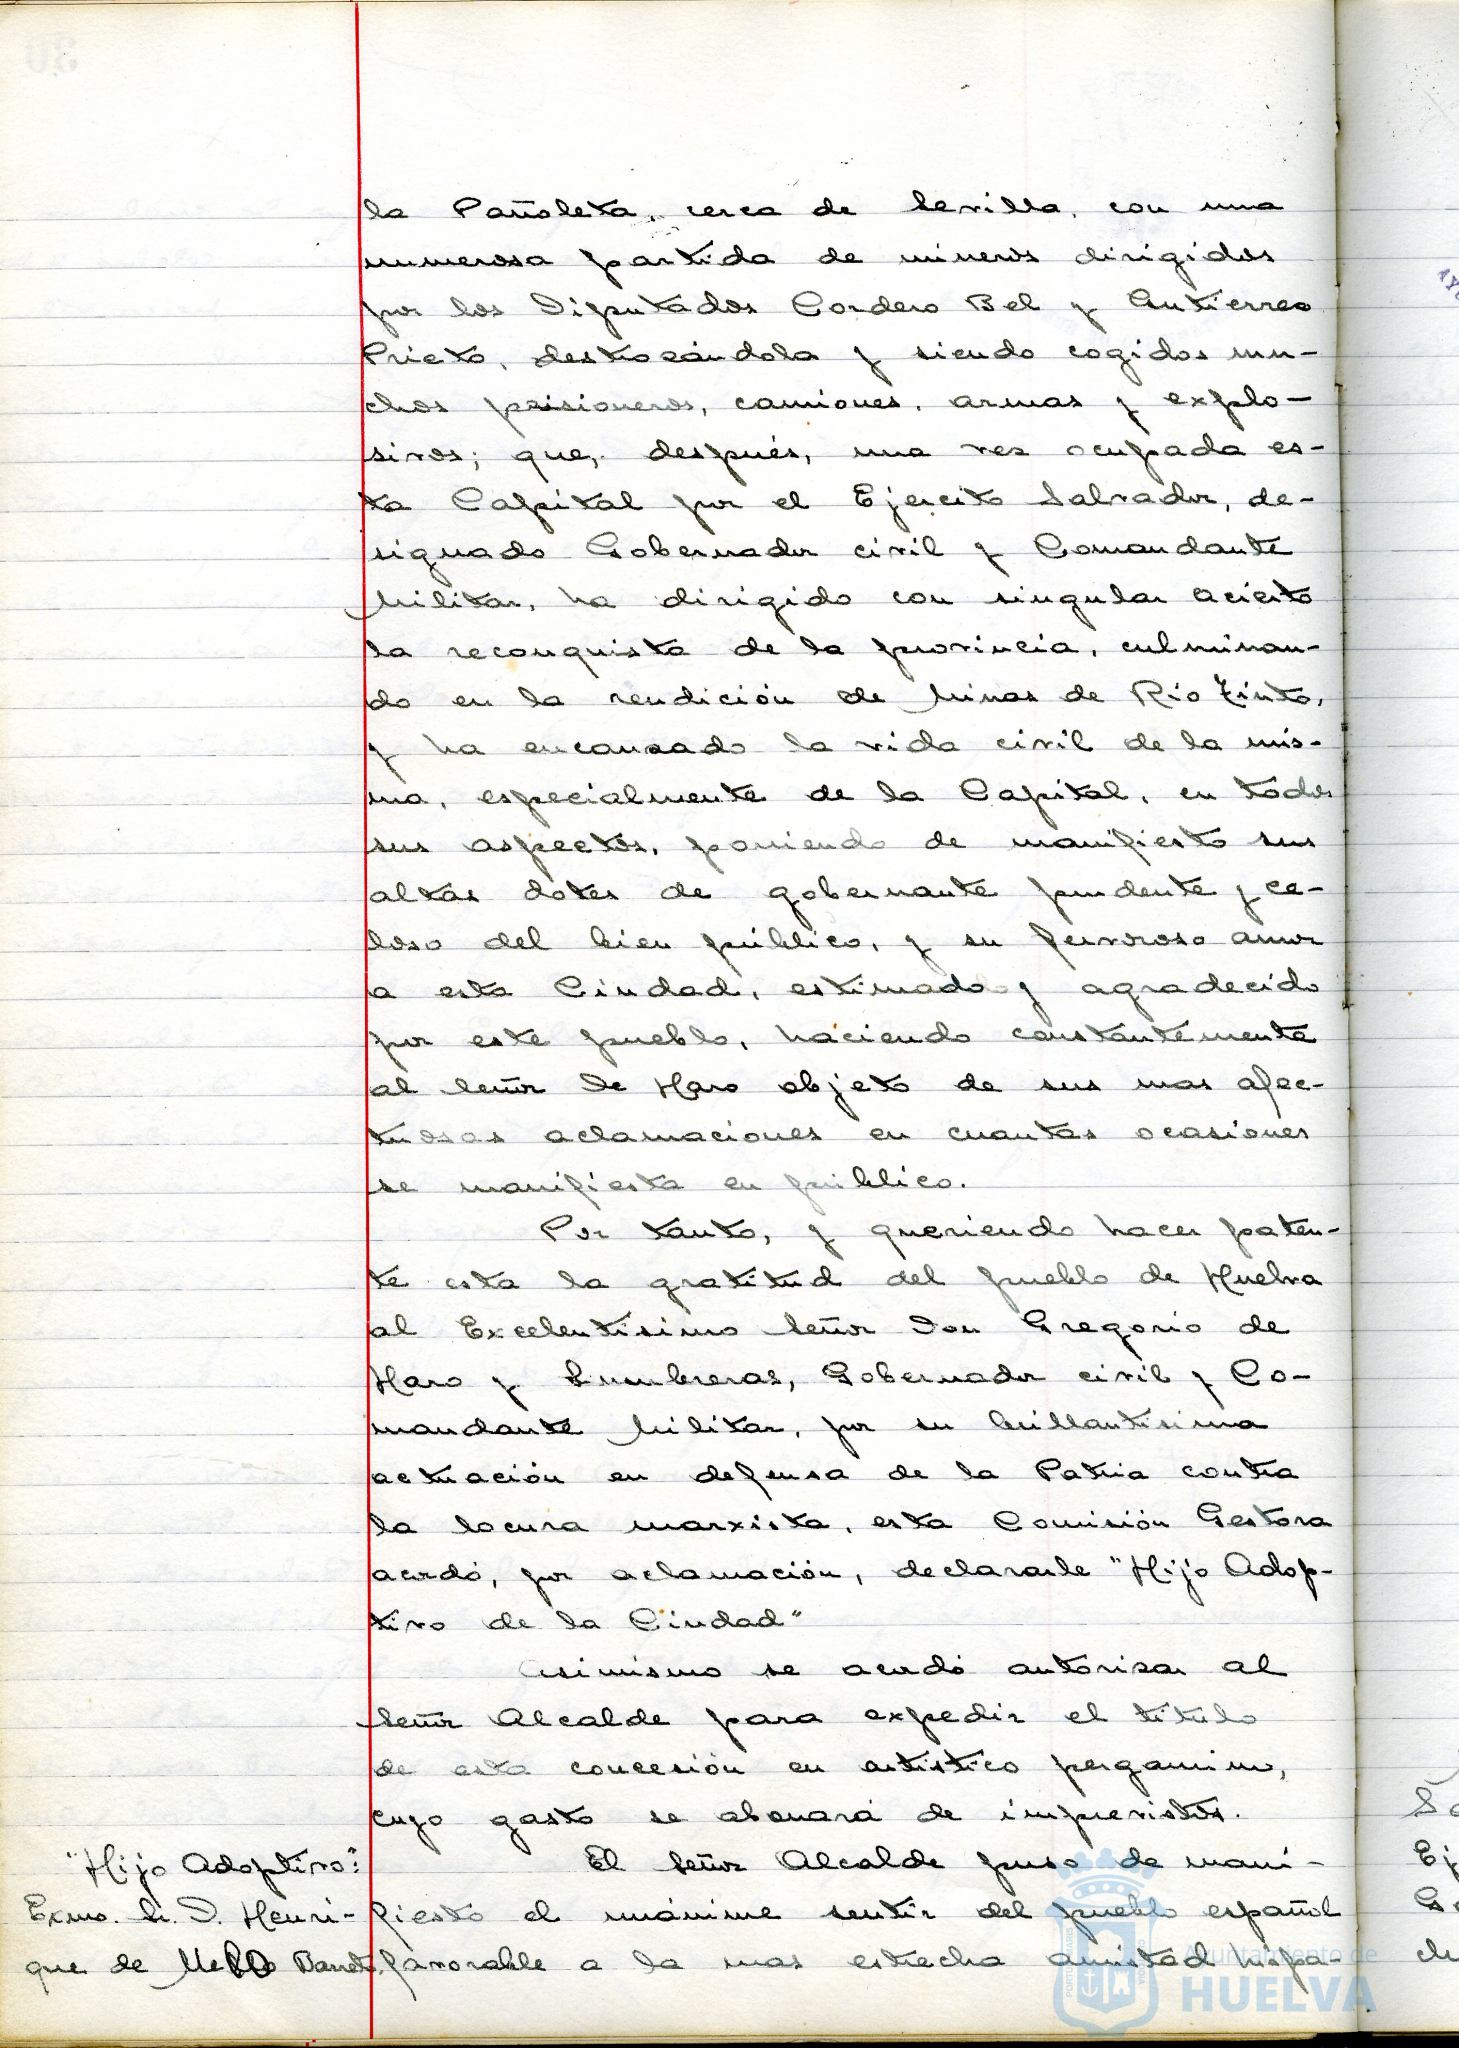 la Pañoleta, cerca de Sevilla, con una
numerosa partida de mineros dirigidos
por los Diputados Cordero Bel y Gutierrez
Prieto, destrozándola y siendo cogidos mu-
chos prisioneros, camiones, armas y explo-
sivos; que, después, una vez ocupada es-
ta Capital por el Ejercito Salvador, de-
signado Gobernador civil y Comandante
Militar, ha dirigido con singular acierto
la reconquista de la provincia, culminan-
do en la rendición de Minas de Rio Tinto,
y ha encauzado la vida civil de la mis-
ma, especialmente de la Capital, en todos
sus aspectos, poniendo de manifiesto sus
altas dotes de gobernante prudente y ce-
loso del bien público, y su fervoroso amor
a esta Ciudad, estimado y agradecido
por este pueblo, haciendo constantemente
al Señor De Haro objeto de sus mas afec-
tuosas aclamaciones en cuantas ocasiones
se manifiesta en público.
Por tanto, y queriendo hacer paten-
te esta la gratitud del pueblo de Huelva
al Excelentisimo Señor Don Gregorio de
Haro y Lumbreras, Gobernador civil y Co-
mandante Militar, por su brillantisima
actuación en defensa de la Patria contra
la locura marxista, esta Comisión Gestora
acordó, por aclamación, declararle "Hijo Adop-
tivo de la Ciudad"
Asimismo se acordó autorizar al
Señor Alcalde para expedir el titulo
de esta concesión en artistico pergamino,
cuyo gasto se abonará de imprevistos.
"Hijo Adoptivo": El Señor Alcalde puso de mani-
Exmo. Sr. D. Henri- fiesto el unánime sentir del pueblo español
que de Mello Barreto. favorable a la mas estrecha amistad hispa-
Ayuntamiento de
HUELVA